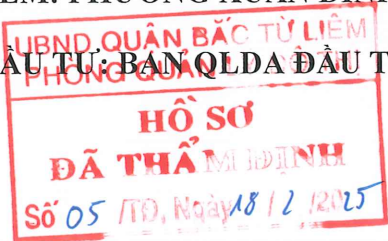 PHƯỜNG XUÂN
UBND QUẬN BẮC TỪ LIÊM
ẦU TƯ: BAN QLDA ĐẦU T
PHÒNG QUẢN
HỒ SƠ
ĐÃ THẨM ĐỊNH
Số 05 /TĐ, Ngày 18 / 2 /2025